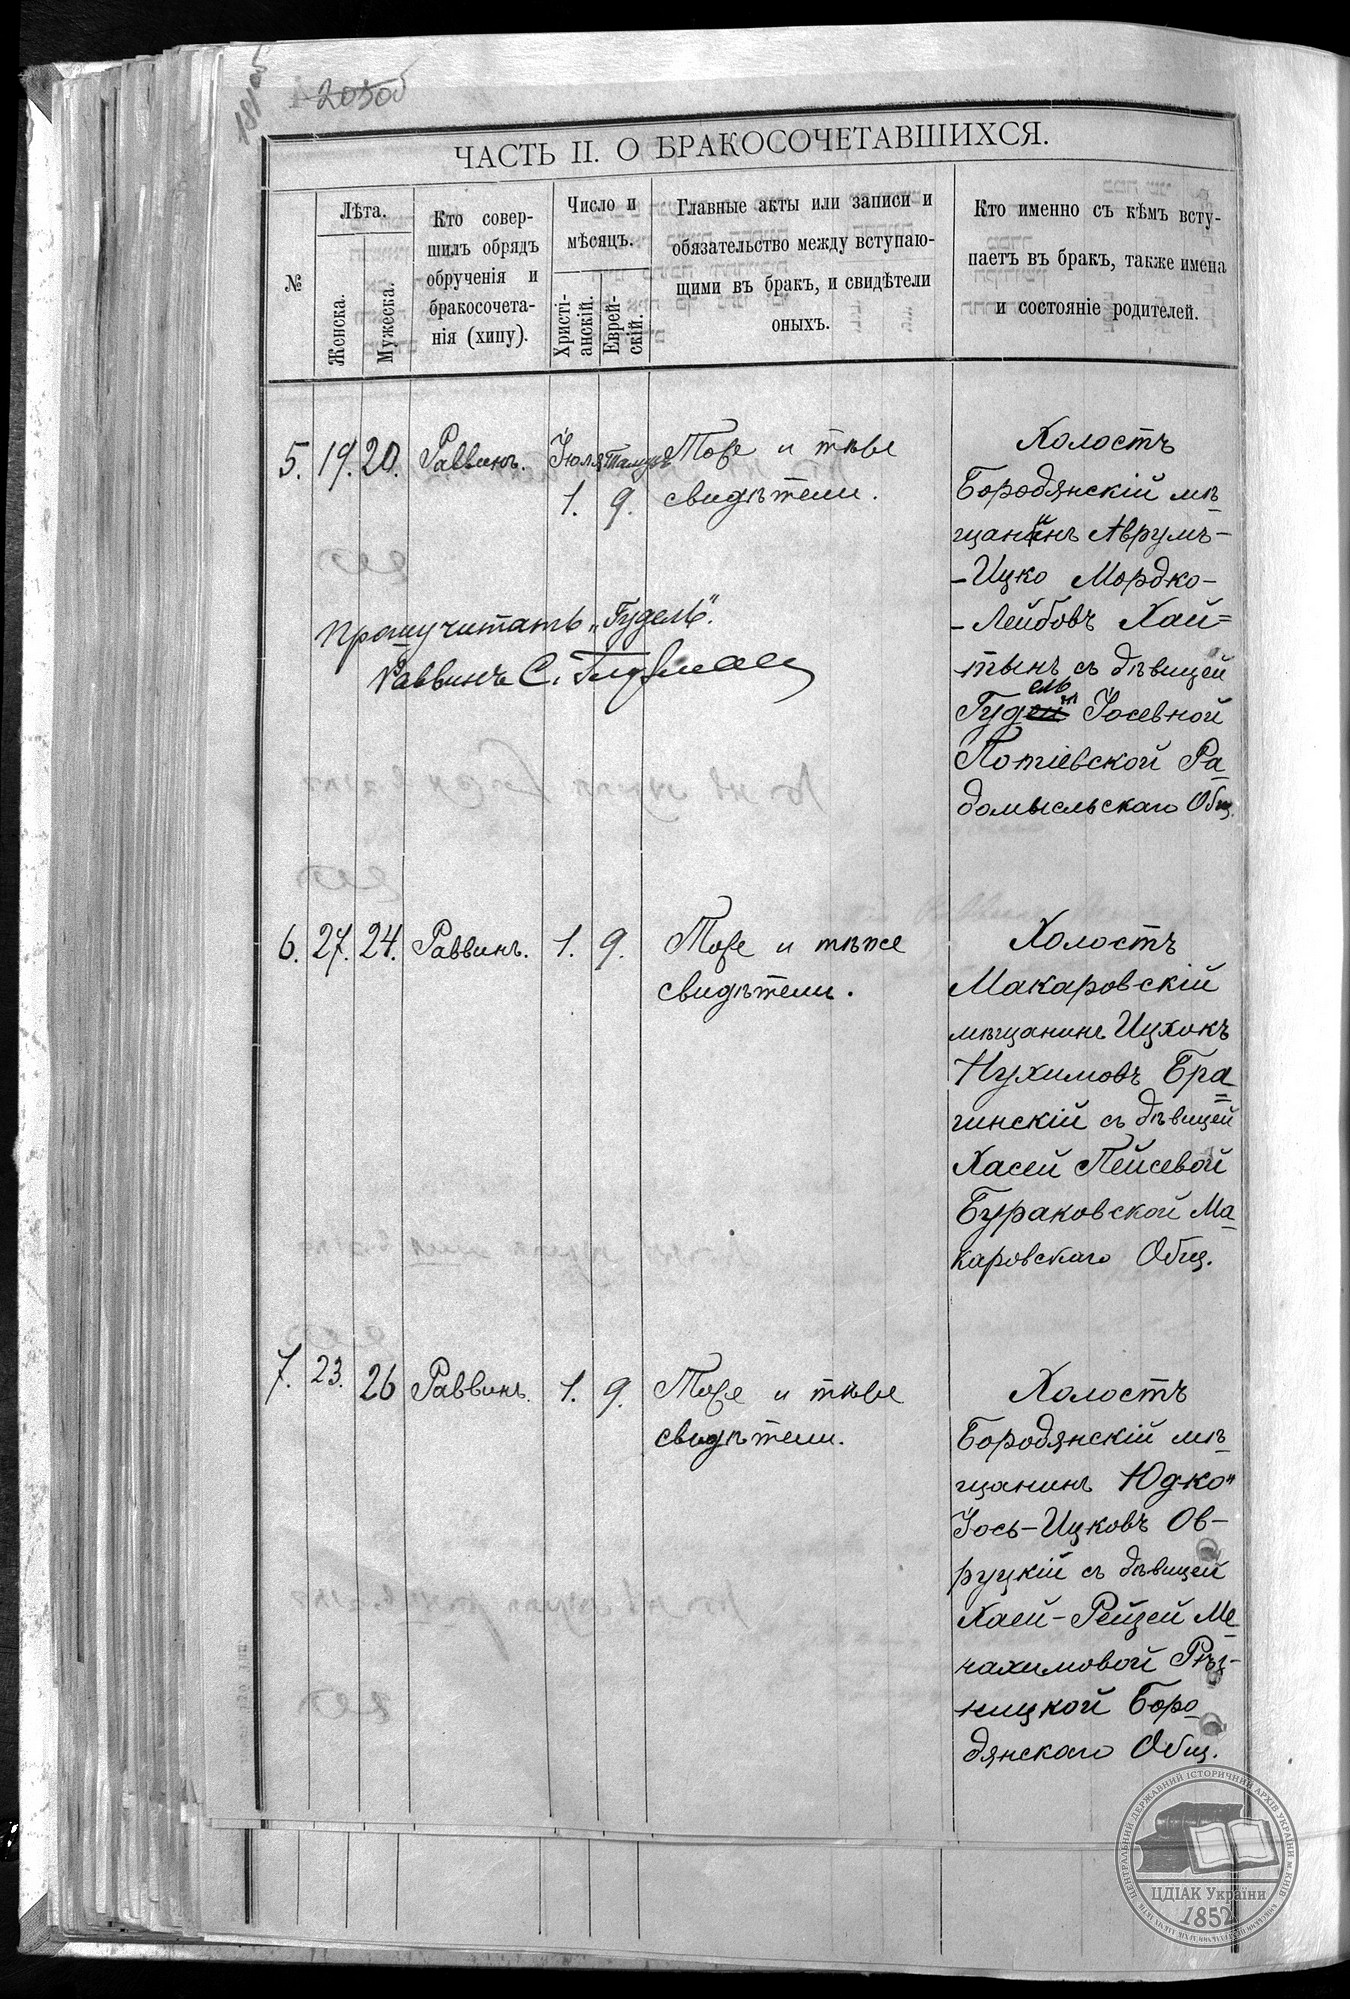 181об
2050об
ЧАСТЬ II. О БРАКОСОЧЕТАВШИХСЯ.
№
Лѣта.
Женска.
Мужеска.
Кто совер-
шилъ обрядъ
обрученія и
бракосочета-
нія (хипу).
Число и
мѣсяцъ.
Христі-
анскій.
Еврей-
скій.
Главные акты или записи и
обязательство между вступаю-
щими въ бракъ, и свидѣтели
оныхъ.
Кто именно съ кѣмъ всту-
паетъ въ бракъ, также имена
и состояніе родителей.
5. 19. 20. Раввинъ. Іюля Тамузъ
1. 9.
Тоже и тѣже
свидѣтели.
Холостъ
Бородянскій мѣ-
щанинъ Аврумъ-
-Ицко Мордко-
-Лейбовъ Хай=
тинъ съ дѣвицей
Гудель Іосевной
Потіевской Ра-
домысльскаго Общ.
Прошу читать „Гудель".
Раввинъ С. Глузман
6. 27. 24. Раввинъ. 1. 9.
Тоже и тѣже
свидѣтели.
Холостъ
Макаровскій
мѣщанинъ Ицхокъ
Нухимовъ Бра=
гинскій съ дѣвицей
Хасей Пейсевой
Бураковской Ма-
каровскаго Общ.
7. 23. 26 Раввинъ. 1. 9.
Тоже и тѣже
свидѣтели.
Холостъ
Бородянскій мѣ-
щанинъ Юдко"
Іось-Ицковъ Ов-
руцкій съ дѣвицей
Хаей-Рейзей Ме-
нахимовой Рѣз-
ницкой Боро-
дянскаго Общ.
ЦЕНТРАЛЬНИЙ ДЕРЖАВНИЙ ІСТОРИЧНИЙ АРХІВ УКРАЇНИ, м. КИЇВ
ЦДІАК України
1852